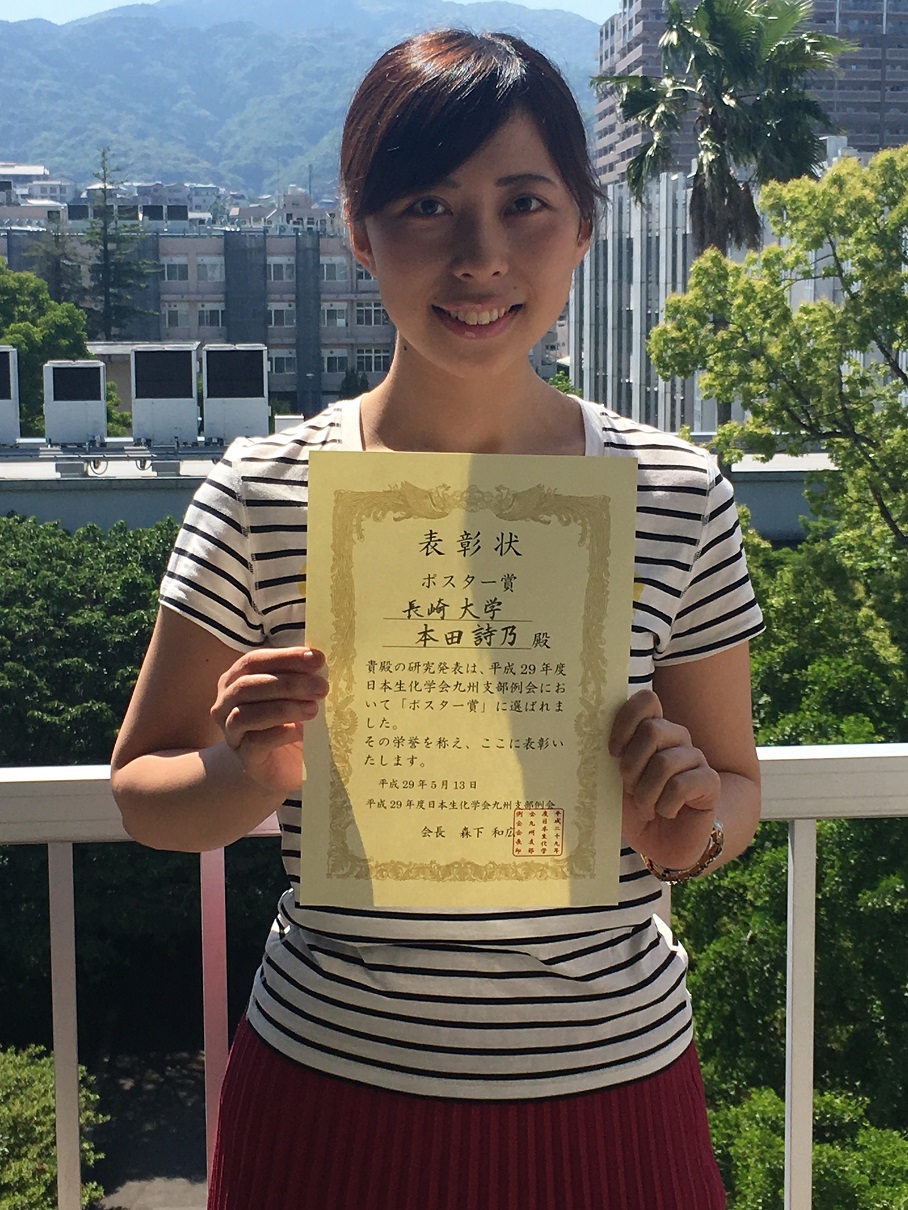 表彰状
ポスター賞
長崎大学
本田詩乃 殿
貴殿の研究発表は、平成29年度
日本生化学会九州支部例会にお
いて「ポスター賞」に選ばれま
した。
その栄誉を称え、ここに表彰い
たします。
平成29年5月13日
平成29年度日本生化学会九州支部例会
会長 森下 和広
平成二十九年
度日本生化学
会九州支部
例会会長印